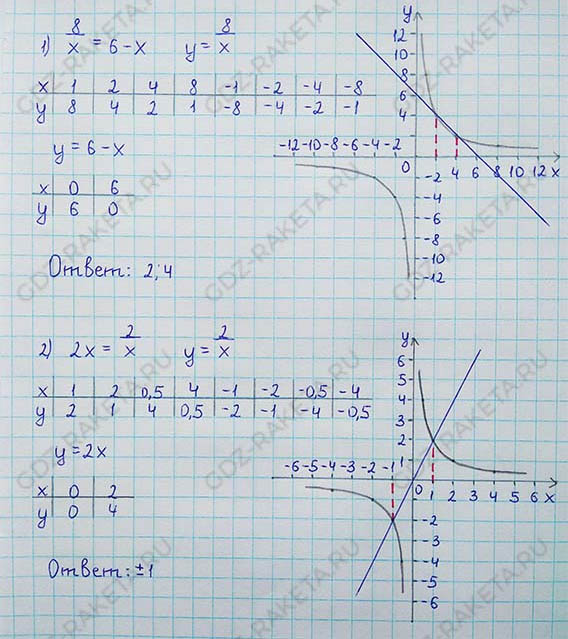 1) 8/x = 6 - x y = 8/x
x 1 2 4 8 -1 -2 -4 -8
y 8 4 2 1 -8 -4 -2 -1
y = 6 - x
x 0 6
y 6 0
Ответ: 2; 4
y
12
10
8
6
4
2
-12 -10 -8 -6 -4 -2
0
-2 4 6 8 10 12 x
-2
-4
-6
-8
-10
-12
2) 2x = 2/x y = 2/x
x 1 2 0,5 4 -1 -2 -0,5 -4
y 2 1 4 0,5 -2 -1 -4 -0,5
y = 2x
x 0 2
y 0 4
Ответ: ±1
y
6
5
4
3
2
1
-6 -5 -4 -3 -2 -1
0 1 2 3 4 5 6 x
-2
-3
-4
-5
-6
GDZ-RAKETA.RU